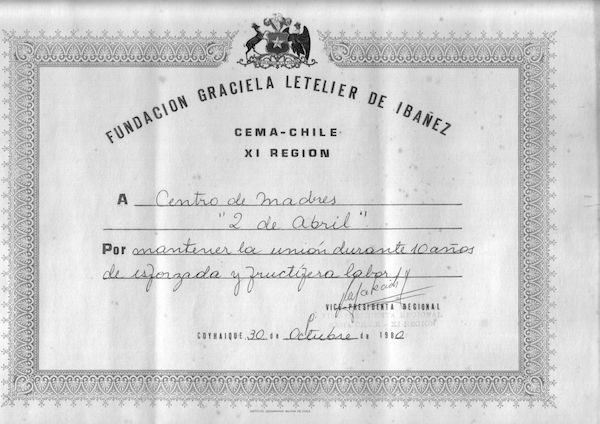 FUNDACION GRACIELA LETELIER DE IBAÑEZ
CEMA-CHILE
XI REGION
A Centro de Madres
"2 de Abril"
Por mantener la unión durante 10 años
de esforzada y fructifera labor
VICE-PRESIDENTA REGIONAL
COYHAIQUE, 30 de Octubre de 1980
INSTITUTO GEOGRAFICO MILITAR DE CHILE